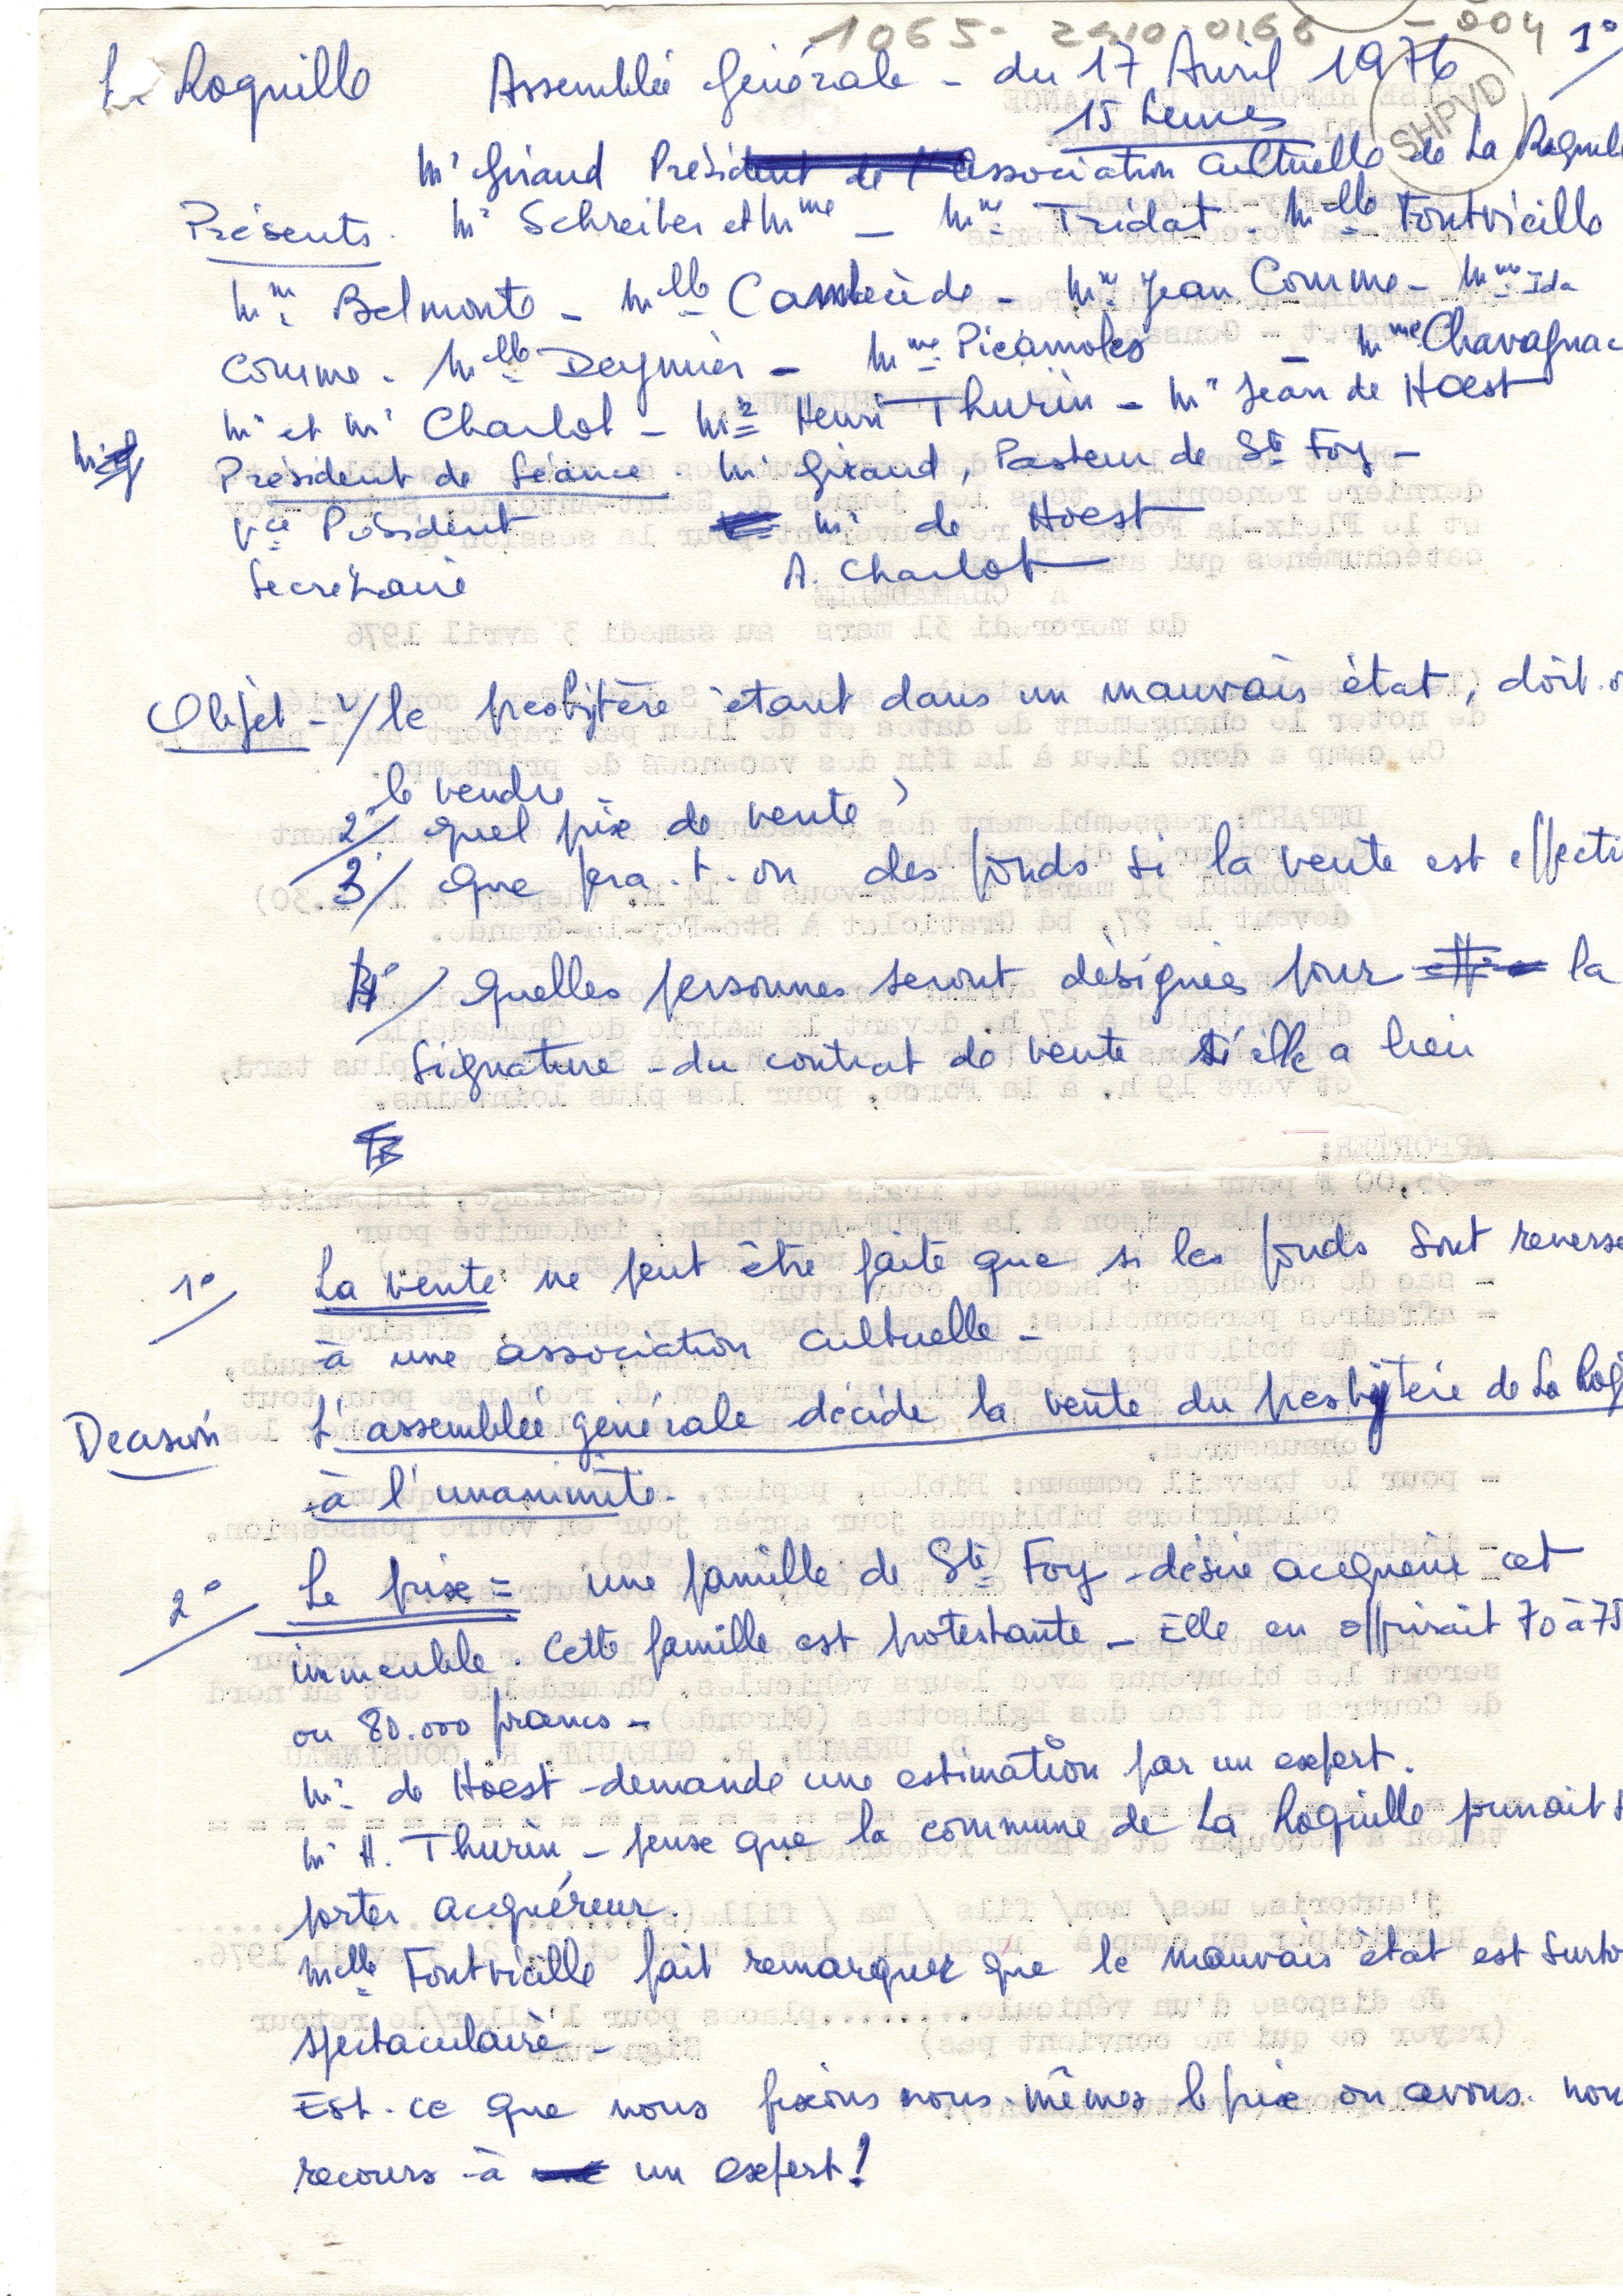 1065-2410-0166-004
1°/
La Roquille Assemblée Générale - du 17 Avril 1976
15 heures
SHPVD
Mr Giraud Président de l'Association cultuelle de La Roquille
Présents. Mr Schreiber et Mme - Mme Tridat. Melle Fontvieille
Mme Belmonte - Melle Cambecède - Mme Jean Comme - Mme Ida
Comme. Melle Deymier - Mme Picamoles - Mme Chavagnac
Mr et Mr Charlot - Mr Henri Thurin - Mr Jean de Hoest
Président de Séance. Mr Giraud, Pasteur de Ste Foy -
Vce Président Mr de Hoest
Secrétaire A. Charlot
Objet - 1/ le presbytère étant dans un mauvais état, doit-o
le vendre
2°/ quel prix de vente ?
3°/ Que fera-t-on des fonds si la vente est effecti
4°/ Quelles personnes seront désignées pour la
signature du contrat de vente si elle a lieu
1°/ La vente ne peut être faite que si les fonds sont reversé
à une association cultuelle -
Decision L'assemblée générale décide la vente du presbytère de La Roq
à l'unanimité.
2°/ Le prix = une famille de Ste Foy désire acquérir cet
immeuble. Cette famille est protestante - Elle en offrirait 70 à 75
ou 80.000 francs -
Mr de Hoest demande une estimation par un expert.
Mr H. Thurin - pense que la commune de La Roquille pourrait s
porter acquéreur.
Melle Fontvieille fait remarquer que le mauvais état est surto
spectaculaire -
Est-ce que nous fixons nous-mêmes le prix ou avons-nou
recours à un expert !